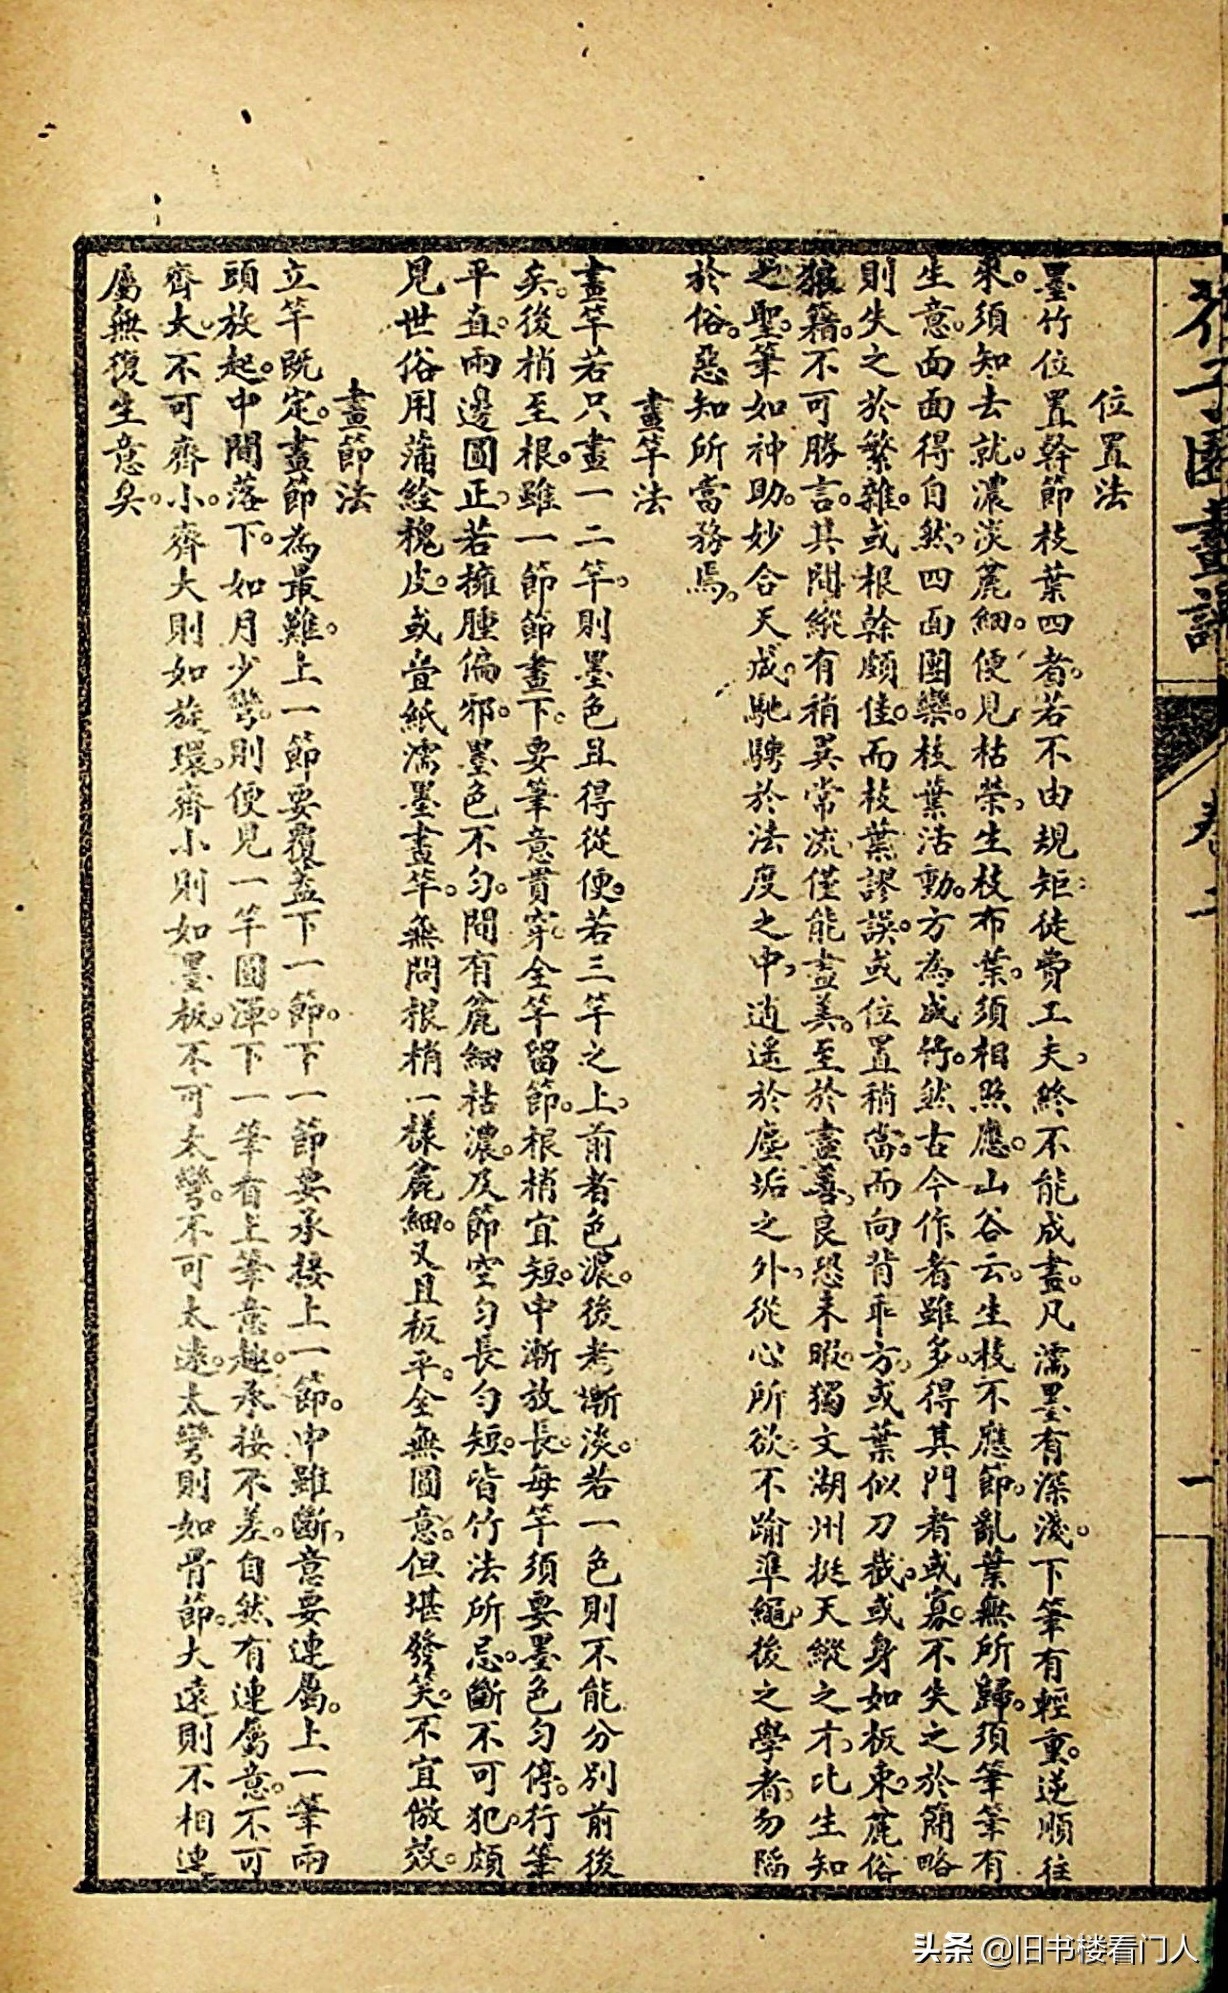 芥子園畫譜
卷二
一
位置法
墨竹位置幹節枝葉四者。若不由規矩。徒費工夫。終不能成畫。凡濡墨有深淺。下筆有輕重。逆順往
來。須知去就。濃淡麄細。便見枯榮。生枝布葉。須相照應。山谷云。生枝不應節。亂葉無所歸。須筆筆有
生意。面面得自然。四面團欒。枝葉活動。方為成竹。然古今作者雖多。得其門者或寡。不失之於簡略
則失之於繁雜。或根幹頗佳。而枝葉謬誤。或位置稍當。而向背乖方。或葉似刀截。或身如板束。麄俗
狼籍。不可勝言。其間縱有稍異常流。僅能盡美。至於盡善。良恐未暇。獨文湖州挺天縱之才。比生知
之聖。筆如神助。妙合天成。馳騁於法度之中。逍遙於塵垢之外。從心所欲。不踰準繩。後之學者。勿陷
於俗。惡知所當務焉。
畫竿法
畫竿若只畫一二竿。則墨色且得從便。若三竿之上。前者色濃。後者漸淡。若一色則不能分別前後
矣。後梢至根。雖一節節畫下。要筆意貫穿。全竿留節。根梢宜短。中漸放長。每竿須要墨色勻停。行筆
平直。兩邊圓正。若擁腫偏邪。墨色不勻。間有麄細枯濃。及節空勻長勻短。皆竹法所忌。斷不可犯。頗
見世俗用蒲絟槐皮。或疊紙濡墨畫竿。無問根梢一樣麄細。又且板平。全無圓意。但堪發笑。不宜倣效。
畫節法
立竿既定。畫節為最難。上一節要覆蓋下一節。下一節要承接上一節。中雖斷。意要連屬。上一筆兩
頭放起。中間落下。如月少彎。則便見一竿圓渾。下一筆看上筆意趣。承接不差。自然有連屬意。不可
齊大。不可齊小。齊大則如旋環。齊小則如墨板。不可太彎。不可太遠。太彎則如骨節。大遠則不相連
屬。無復生意矣。
头条 @旧书楼看门人